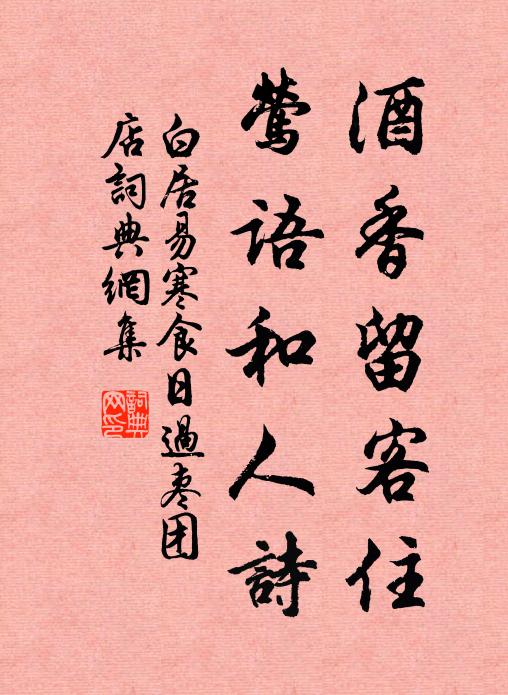 酒香留客住
莺語和人詩
白居易寒食日過枣团
店詞典網集
詞典
网印